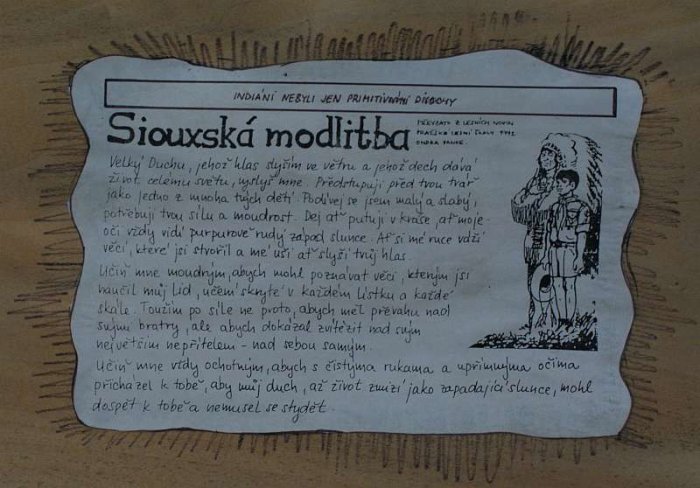 INDIÁNI NEBYLI JEN PRIMITIVNÍMI DIVOCHY
Siouxská modlitba
PŘEVZATO Z LESNÍCH NOVIN
PRAŽSKÉ LESNÍ ŠKOLY 1992
Velký Duchu, jehož hlas slyším ve větru a jehož dech dává
život celému světu, vyslyš mne. Předstupuji před tvou tvář
jako jedno z mnoha tvých dětí. Podívej se jsem malý a slabý,
potřebuji tvou sílu a moudrost. Dej ať putuji v kráse, ať moje
oči vždy vidí purpurově rudý západ slunce. Ať si mé ruce váží
věcí, které jsi stvořil a mé uši ať slyší tvůj hlas.
Učiň mne moudrým, abych mohl poznávat věci, kterým jsi
naučil můj lid, učení skryté v každém lístku a každé
skále. Toužím po síle ne proto, abych měl převahu nad
svými bratry, ale abych dokázal zvítězit nad svým
největším nepřítelem - nad sebou samým.
Učiň mne vždy ochotným, abych s čistýma rukama a upřímnýma očima
přicházel k tobě, aby můj duch, až život zmizí jako zapadající slunce, mohl
dospět k tobě a nemusel se stydět.